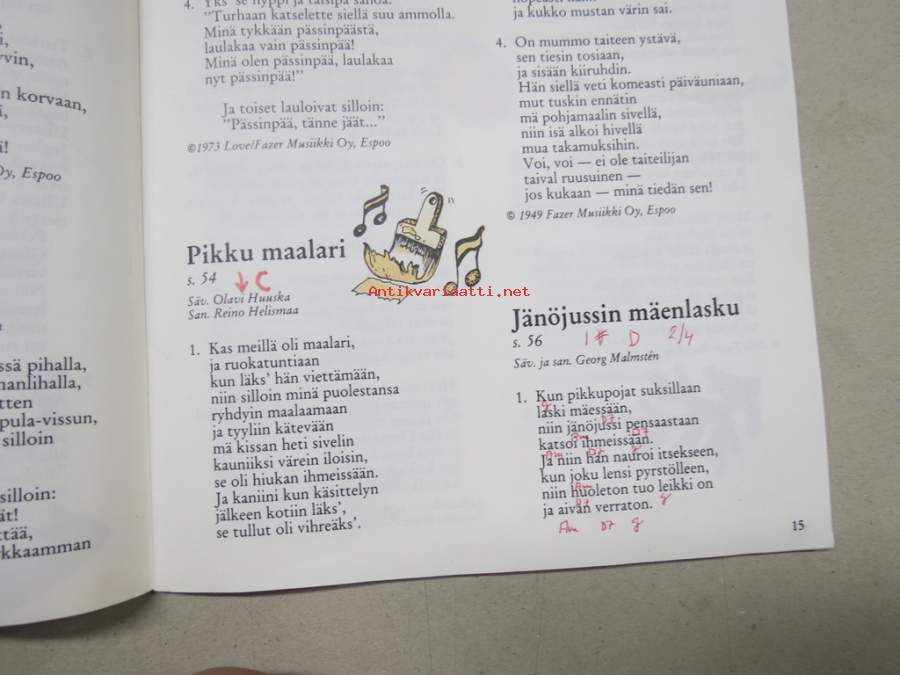 yvin,
n korvaan,
ä!
Oy, Espoo
ssä pihalla,
nanlihalla,
tten
pula-vissun,
silloin
silloin:
ät!
ttää,
kkaamman
4. Yks' se hyppi ja taisipa sanoa:
"Turhaan katselette siellä suu ammolla.
Minä tykkään pässinpäästä,
laulakaa vain pässinpää!
Minä olen pässinpää, laulakaa
nyt pässinpää!"
Ja toiset lauloivat silloin:
"Pässinpää, tänne jäät..."
©1973 Love/Fazer Musiikki Oy, Espoo
Pikku maalari
s. 54 ↓C
Säv. Olavi Huuska
San. Reino Helismaa
1. Kas meillä oli maalari,
ja ruokatuntiaan
kun läks' hän viettämään,
niin silloin minä puolestansa
ryhdyin maalaamaan
ja tyyliin kätevään
mä kissan heti sivelin
kauniiksi värein iloisin,
se oli hiukan ihmeissään.
Ja kaniini kun käsittelyn
jälkeen kotiin läks',
se tullut oli vihreäks'.
ja kukko mustan värin sai.
4. On mummo taiteen ystävä,
sen tiesin tosiaan,
ja sisään kiiruhdin.
Hän siellä veti komeasti päiväuniaan,
mut tuskin ennätin
mä pohjamaalin sivellä,
niin isä alkoi hivellä
mua takamuksihin.
Voi, voi — ei ole taiteilijan
taival ruusuinen —
jos kukaan — minä tiedän sen!
© 1949 Fazer Musiikki Oy, Espoo
Antikvariaatti.net
Jänöjussin mäenlasku
s. 56 1# D 2/4
Säv. ja san. Georg Malmstén
1. Kun pikkupojat suksillaan
laski mäessään,
g
niin jänöjussi pensaastaan
D7
katsoi ihmeissään.
Am D7
Ja niin hän nauroi itsekseen,
Am D7 g
kun joku lensi pyrstölleen,
niin huoleton tuo leikki on
Am
ja aivan verraton.
D7 g
Am D7 g
15